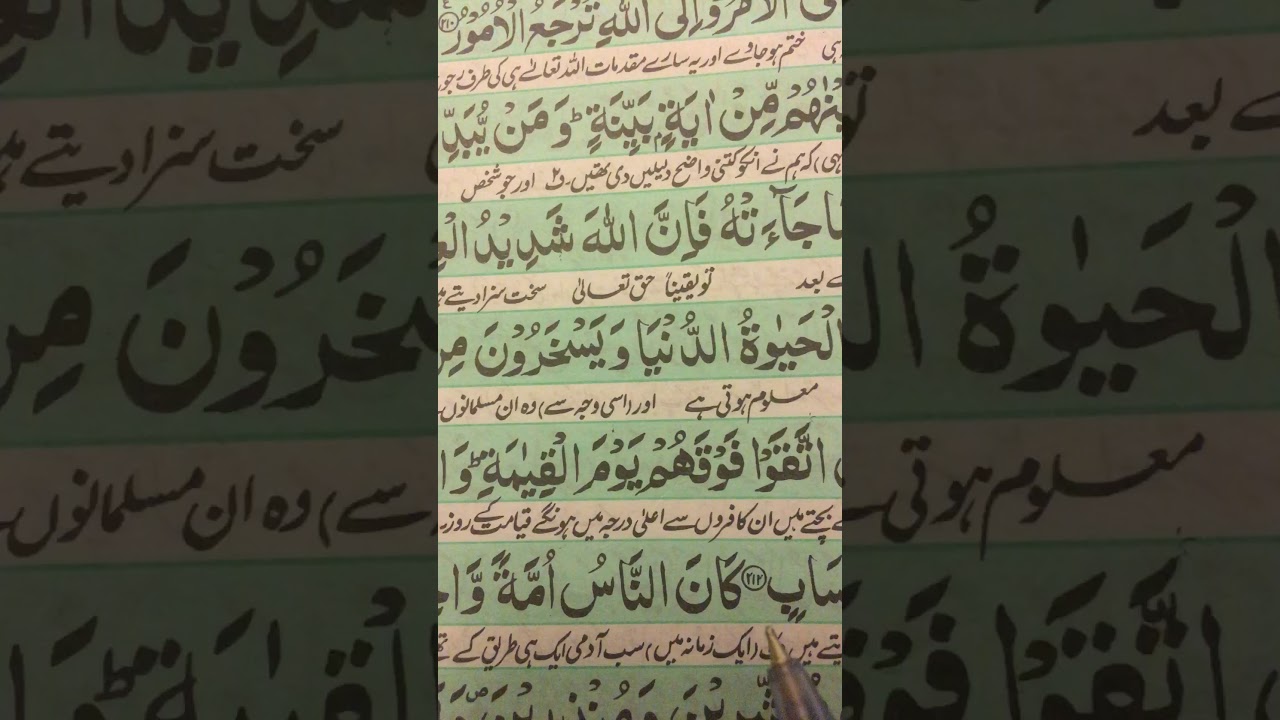 الْاَمْرُ وَاِلَى اللّٰهِ تُرْجَعُ الْاُمُوْرُ ﴿۲۱۰﴾
ختم ہو جاوے اور یہ سارے مقدمات اللہ تعالےٰ ہی کی طرف رجو
مِّنْ اٰيَةٍۭ بَيِّنَةٍ ؕ وَ مَنْ يُّبَدِّ
کہ ہم نے انکو کتنی واضح دلیلیں دی تھیں۔ ف۲ اور جو شخص
جَآءَتْهُ فَاِنَّ اللّٰهَ شَدِيْدُ الْعِ
ے بعد تو یقیناً حق تعالیٰ سخت سزا دیتے ہیں
الْحَيٰوةُ الدُّنْيَا وَ يَسْخَرُوْنَ مِنَ
معلوم ہوتی ہے اور (اسی وجہ سے) وہ ان مسلمانوں
اتَّقَوْا فَوْقَهُمْ يَوْمَ الْقِيٰمَةِ ؕ وَ ا
بچتے ہیں ان کافروں سے اعلیٰ درجہ میں ہونگے قیامت کے روز۔
سَابٍ ﴿۲۱۲﴾ كَانَ النَّاسُ اُمَّةً وَّاحِ
یتے ہیں (ایک زمانہ میں) سب آدمی ایک ہی طریق کے تھے
وَ مُنْذِرِيْنَ